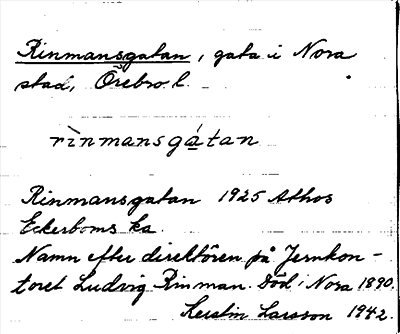 Rinmansgatan, gata i Nora
stad, Örebro l.
rìnmansgá̱tan
Rinmansgatan 1925 Athos
Eckerboms ka.
Namn efter direktören på Jernkon-
toret Ludvig Rinman. Död i Nora 1890.
Kerstin Larsson 1942.